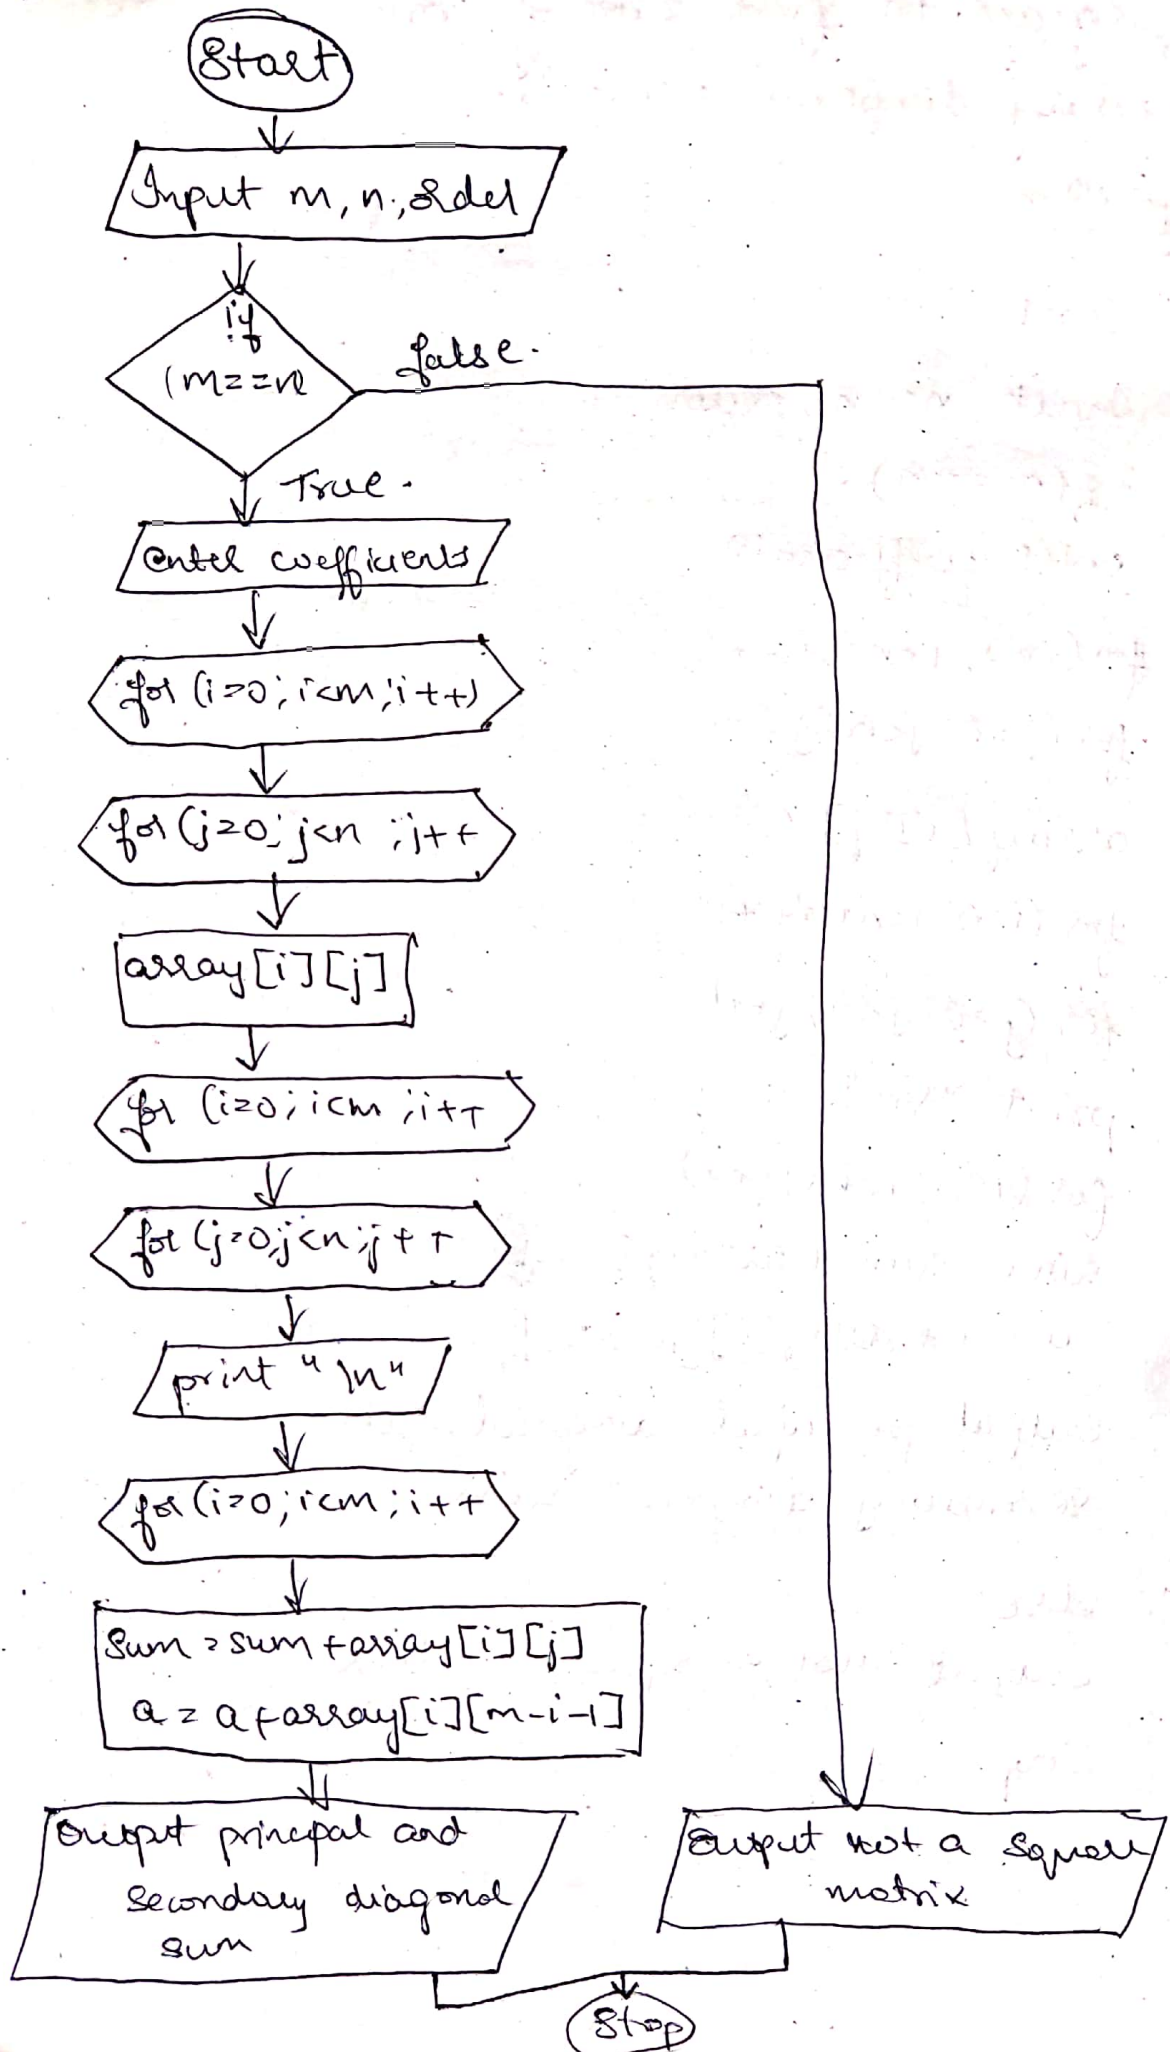 Start
Input m, n, order
if
(m==n
false.
True.
enter coefficients
for (i=0; i<m; i++)
for (j=0; j<n ; j++
array[i][j]
for (i=0; i<m ; i++
for (j=0; j<n; j++
print "\n"
for (i=0; i<m; i++
Sum = sum + array[i][j]
a = a + array[i][m-i-1]
Output principal and
secondary diagonal
sum
Output not a square
matrix
Stop